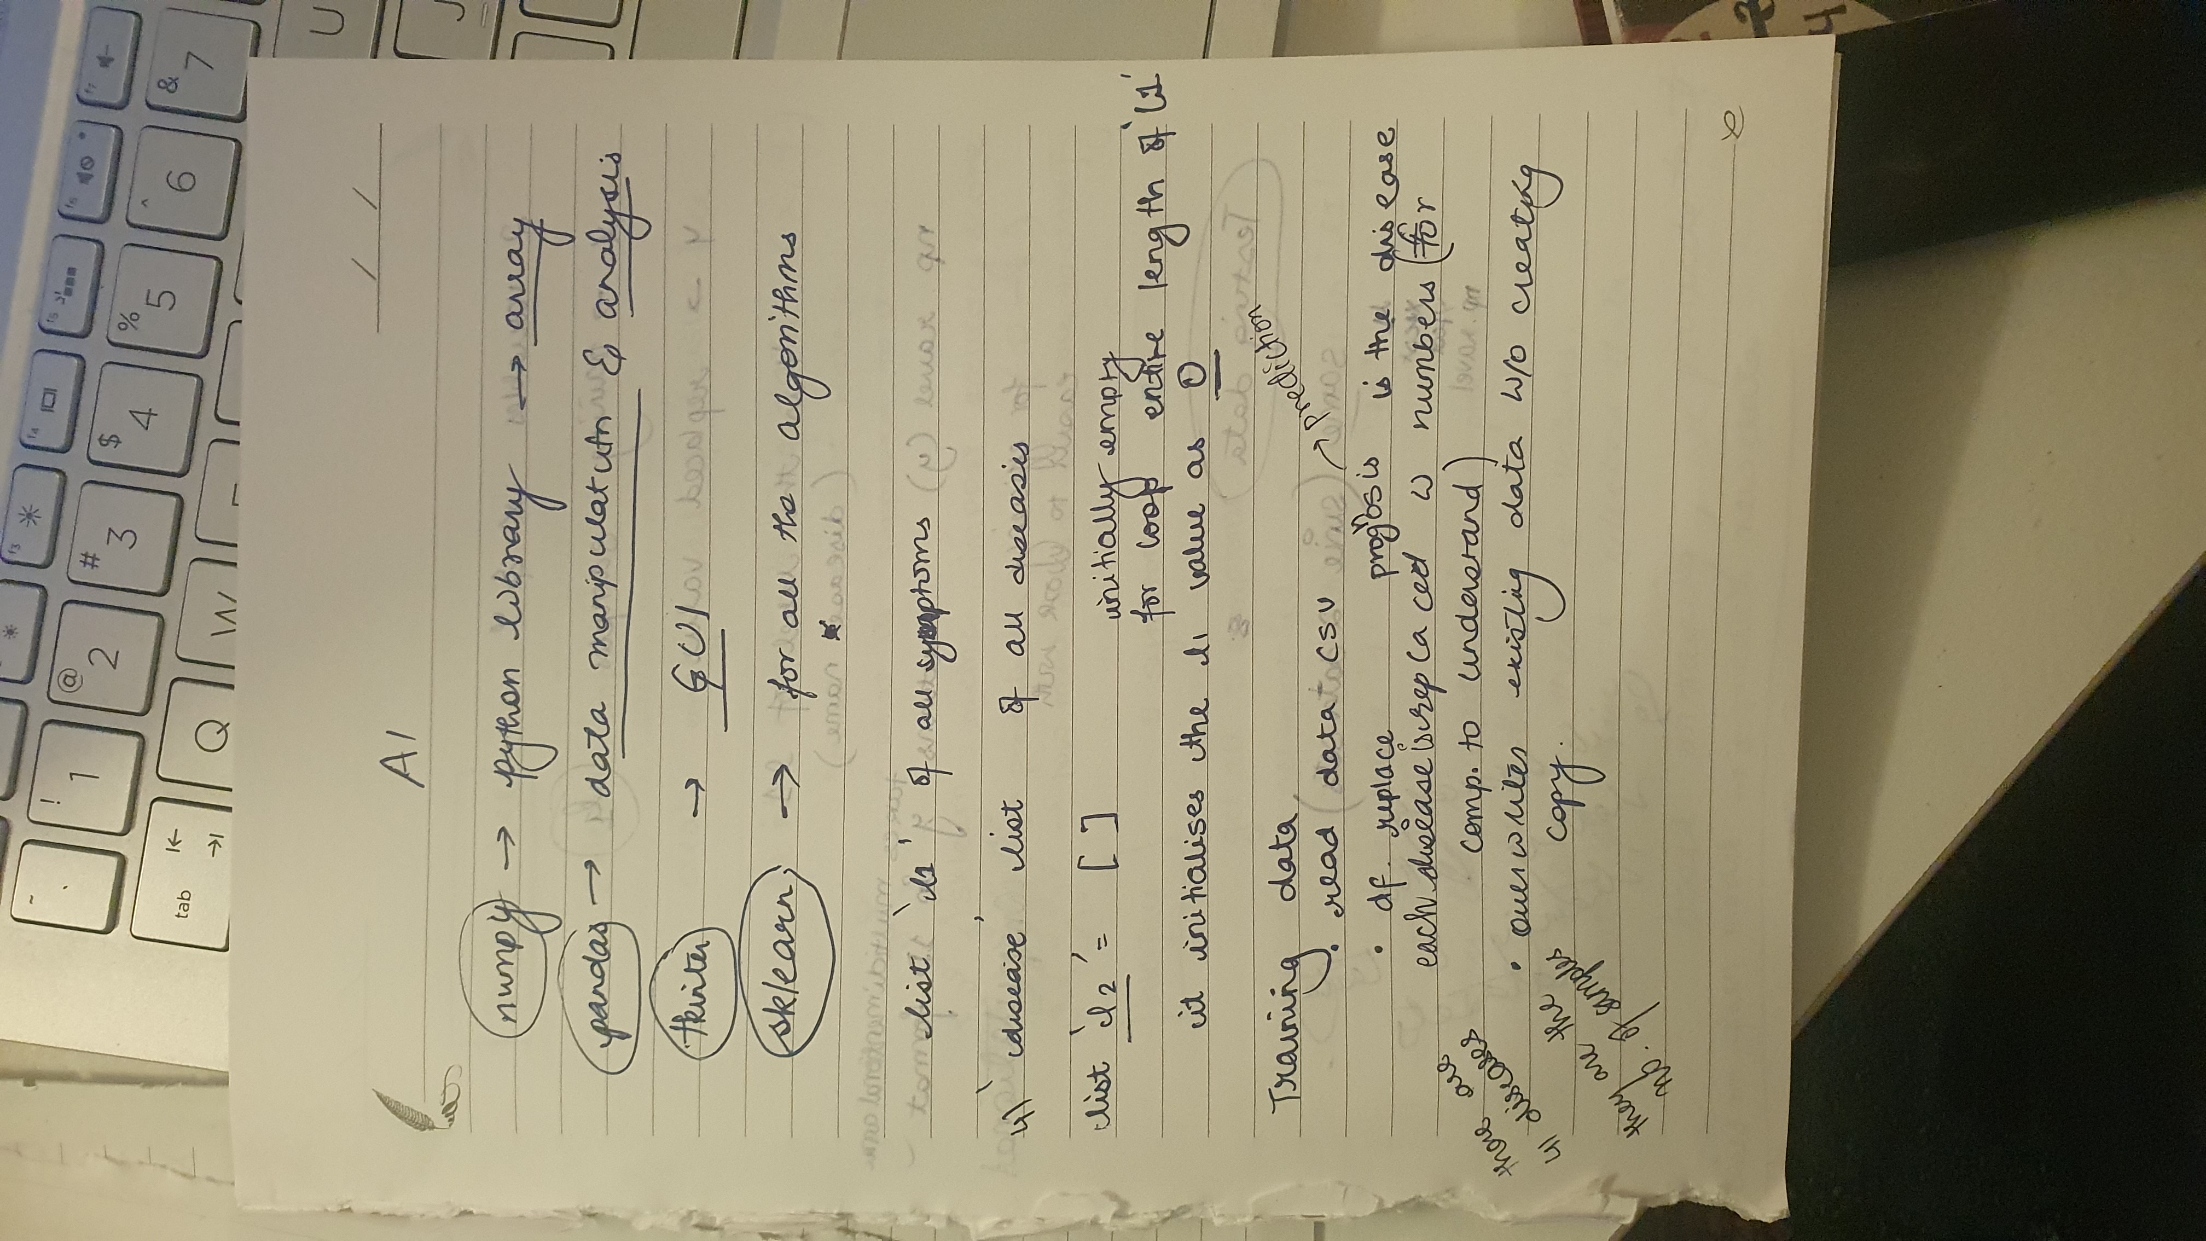 AI
numpy → python library → array
pandas → data manipulatutn & analysis
tkinter → GUI
sklearn → for all the algorithms
list 'l1' of all symptoms
'disease' list of all diseases
list 'l2' = [ ] initially empty
for loop entire length of 'l1'
it initialises the l1 value as 0
Training data
• read data csv → prediction
• df. replace prognosis is the disease
each disease is replaced w numbers (for
comp. to understand)
• overwrites existing data w/o creating
copy.
there are
41 diseases
they are the
no. of samples
e
tab
Q
W
U
J
~
`
!
1
@
2
#
3
$
4
%
5
^
6
&
7